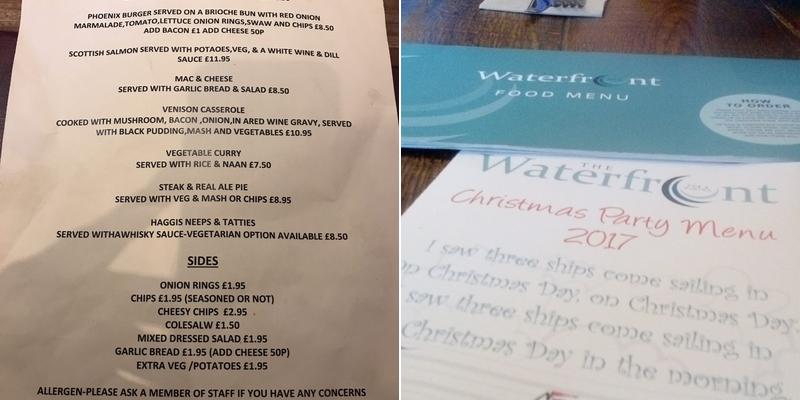 PHOENIX BURGER SERVED ON A BRIOCHE BUN WITH RED ONION
MARMALADE,TOMATO,LETTUCE ONION RINGS,SWAW AND CHIPS £8.50
ADD BACON £1 ADD CHEESE 50P
SCOTTISH SALMON SERVED WITH POTAOES,VEG, & A WHITE WINE & DILL
SAUCE £11.95
MAC & CHEESE
SERVED WITH GARLIC BREAD & SALAD £8.50
VENISON CASSEROLE
COOKED WITH MUSHROOM, BACON ,ONION,IN ARED WINE GRAVY, SERVED
WITH BLACK PUDDING,MASH AND VEGETABLES £10.95
VEGETABLE CURRY
SERVED WITH RICE & NAAN £7.50
STEAK & REAL ALE PIE
SERVED WITH VEG & MASH OR CHIPS £8.95
HAGGIS NEEPS & TATTIES
SERVED WITHAWHISKY SAUCE-VEGETARIAN OPTION AVAILABLE £8.50
SIDES
ONION RINGS £1.95
CHIPS £1.95 (SEASONED OR NOT)
CHEESY CHIPS £2.95
COLESALW £1.50
MIXED DRESSED SALAD £1.95
GARLIC BREAD £1.95 (ADD CHEESE 50P)
EXTRA VEG /POTATOES £1.95
ALLERGEN-PLEASE ASK A MEMBER OF STAFF IF YOU HAVE ANY CONCERNS
Waterfront
FOOD MENU
HOW
TO ORDER
THE
Waterfront
Christmas Party Menu
2017
I saw three ships come sailing in
on Christmas Day, on Christmas Day
saw three ships come sailing in
Christmas Day in the morning